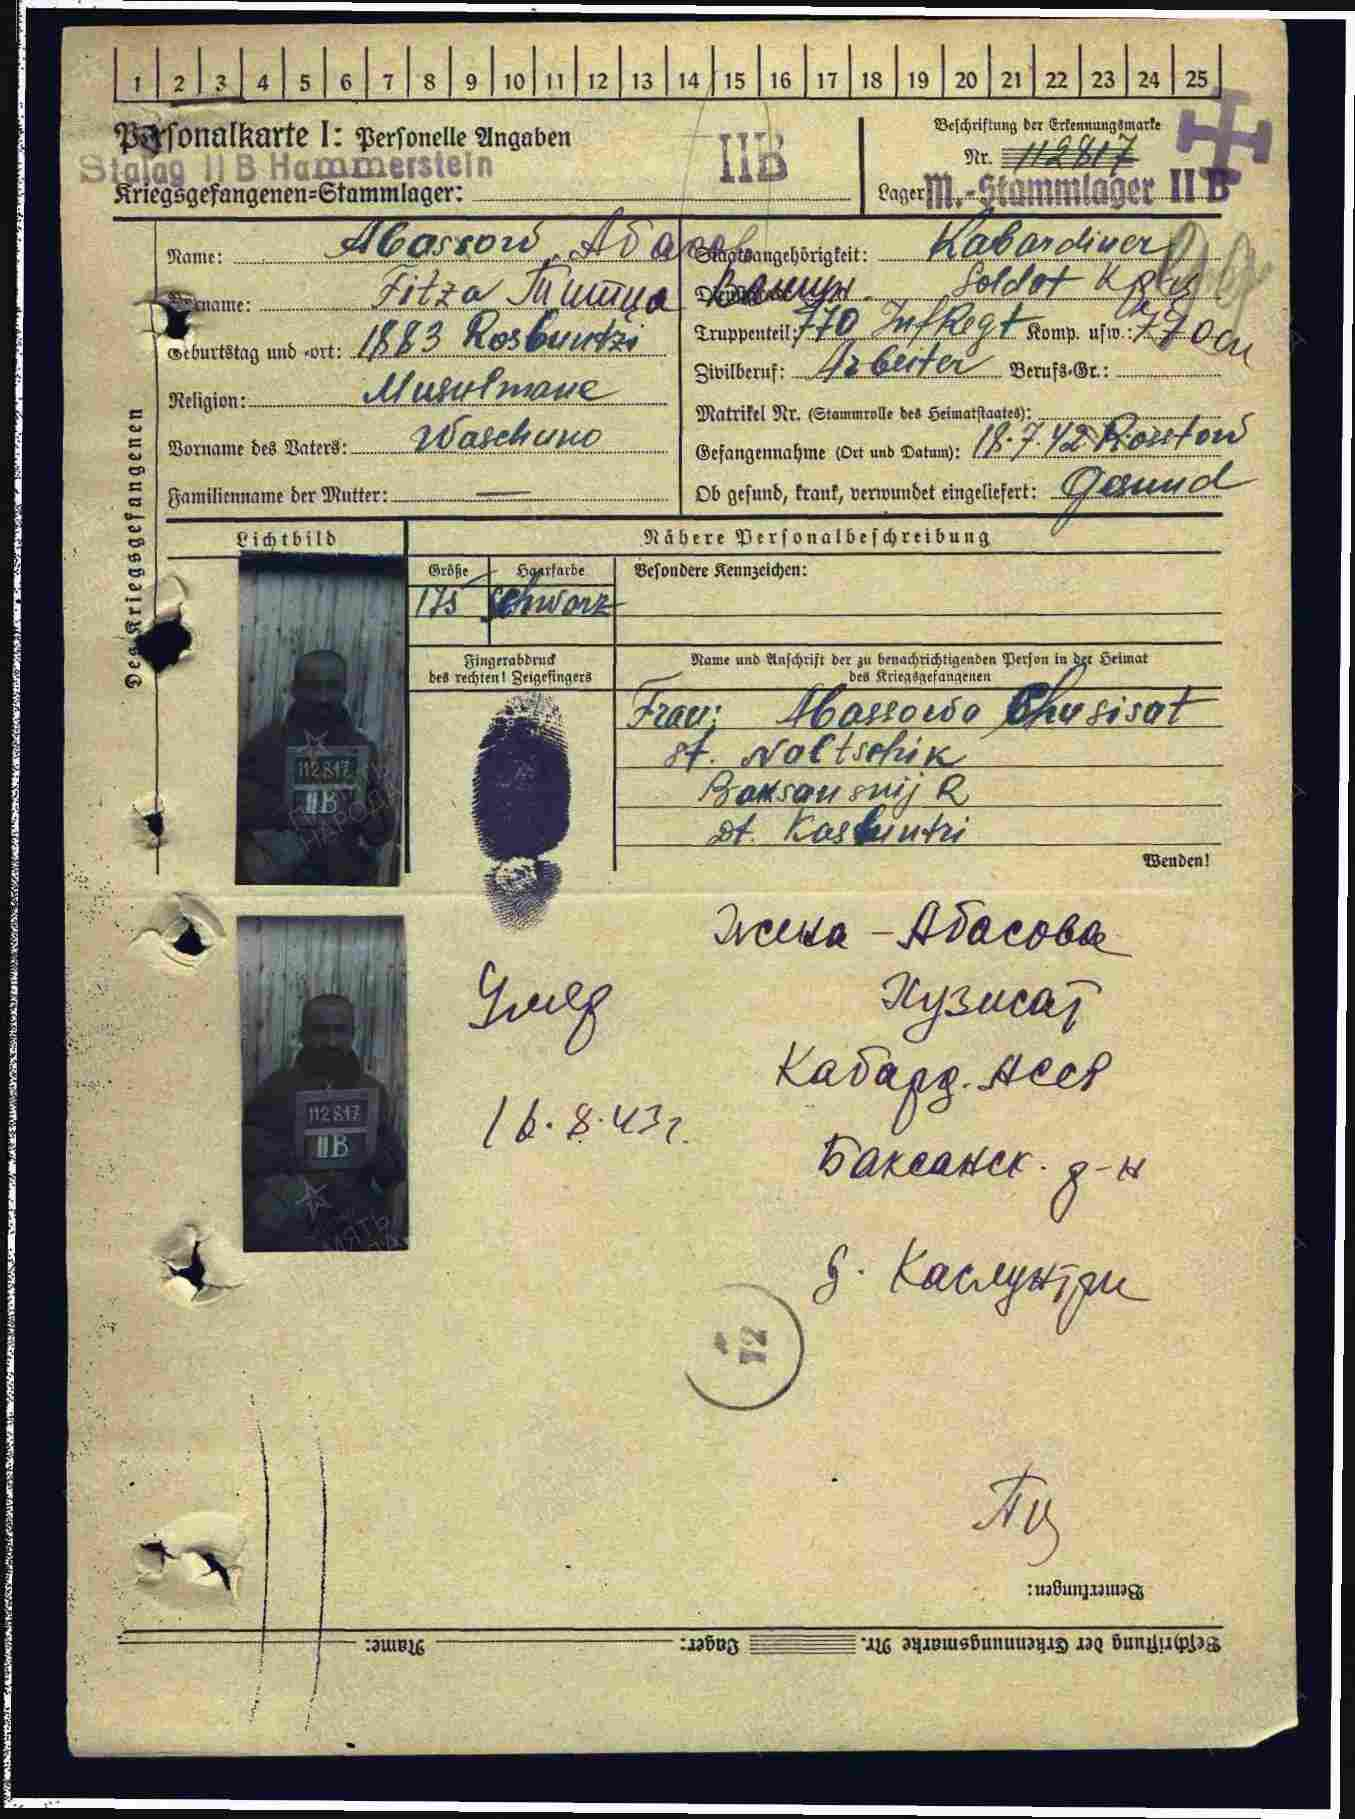 1 2 3 4 5 6 7 8 9 10 11 12 13 14 15 16 17 18 19 20 21 22 23 24 25
Personalkarte I: Personelle Angaben
II B
Beschriftung der Erkennungsmarke
Nr. 112817
Stalag II B Hammerstein
Kriegsgefangenen-Stammlager:
Lager: M.-Stammlager II B
Des Kriegsgefangenen
Name: Abassow Абасов
Vorname: Fitza Титца Вашун
Geburtstag und -ort: 1883 Kosbuntzi
Religion: Muselmane
Vorname des Vaters: Waschuno
Familienname der Mutter: —
Staatsangehörigkeit: Kabardiner
Soldat
Truppenteil: 770 Inf Regt Komp. usw.: 770 сп
Zivilberuf: Arbeiter Berufs-Gr.:
Matrikel Nr. (Stammrolle des Heimatstaates):
Gefangennahme (Ort und Datum): 18.7.42 Rostow
Ob gesund, krank, verwundet eingeliefert: Gesund
Lichtbild
Nähere Personalbeschreibung
Größe Haarfarbe Besondere Kennzeichen:
175 schwarz
Fingerabdruck
des rechten! Zeigefingers
Name und Anschrift der zu benachrichtigenden Person in der Heimat
des Kriegsgefangenen
Frau: Abassowa Chusisat
st. Naltschik
Baksanskij R
dt. Kasbuntri
Wenden!
112817
II B
ПАМЯТЬ
НАРОДА
Жена - Абасова
Хузисат
Кабард. АССР
Баксанск. р-н
д. Каслунтри
Умер
16.8.43 г.
112817
II B
ПАМЯТЬ
12
Bemerkungen:
Beschriftung der Erkennungsmarke Nr. Lager: Name: